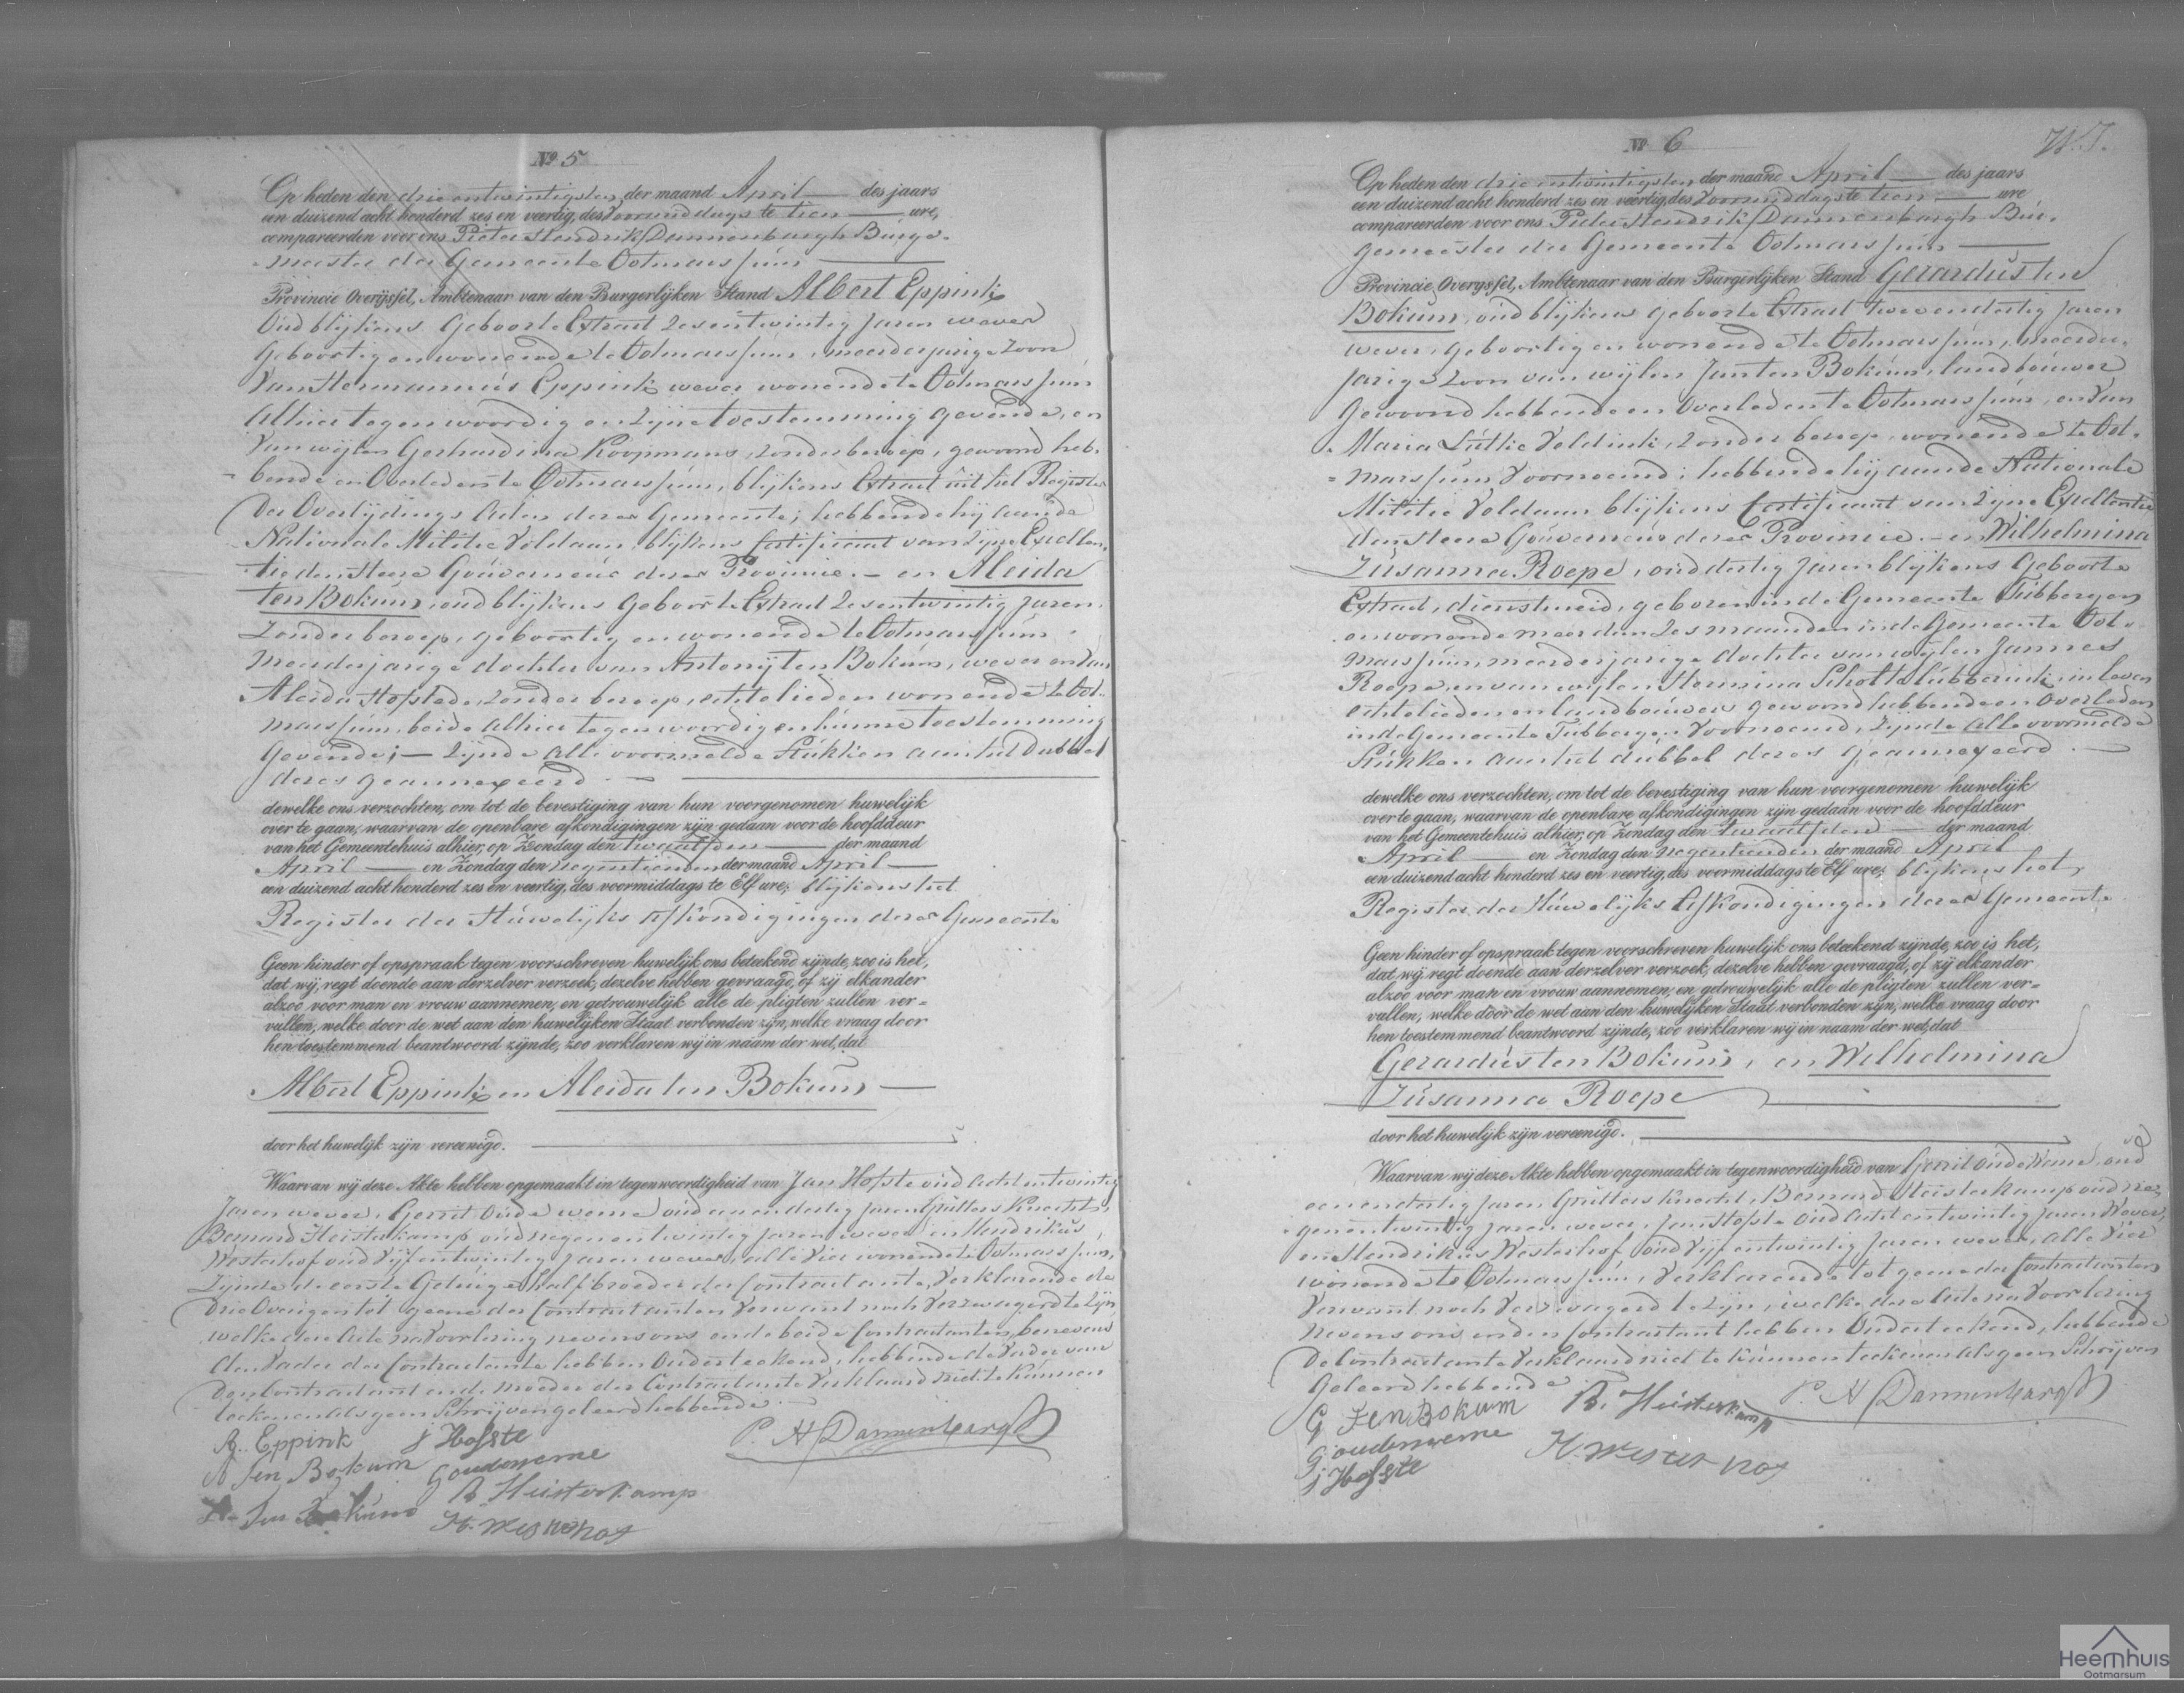 № 5
Op heden den drie entwintigsten der maand April des jaars
een duizend acht honderd zes en veertig, des Voormiddags te tien ure,
compareerden voor ons Pieter Hendrik Dannenbargh Burge-
meester der Gemeente Ootmarssum
Provincie Overijssel, Ambtenaar van den Burgerlijken Stand Albert Eppink
Oud blijkens Geboorte Extract zesentwintig Jaren wever
Geboortig en wonende te Ootmarssum, meerderjarige Zoon
Van Hermannus Eppink wever wonende te Ootmarssum
Alhier tegenwoordig en zijne toestemming gevende, en
Van wijlen Gerhardina Koopmans, zonder beroep, gewoond heb-
bende en Overleden te Ootmarssum, blijkens Extract uit het Register
Der Overlijdings Acten dezer Gemeente; hebbende hij aan de
Nationale Militie Voldaan, blijkens Certificaat van zijne Excellen-
tie den Heere Gouverneur dezer Provincie. — en Aleida
ten Bokum, oud blijkens Geboorte Extract zesentwintig Jaren,
Zonder beroep, geboortig en wonende te Ootmarssum
Meerderjarige dochter van Antonij ten Bokum, wever en van
Aleida Hofstede, zonder beroep, echtelieden wonende te Oot-
marssum, beide alhier tegenwoordig en hunne toestemming
Gevende; — Zijnde alle voormelde Stukken aan het Dubbel
dezes geannexeerd
dewelke ons verzochten, om tot de bevestiging van hun voorgenomen huwelijk
over te gaan, waarvan de openbare afkondigingen zijn gedaan voor de hoofddeur
van het Gemeentehuis alhier, op Zondag den twaalfden der maand
April en Zondag den Negentienden der maand April
een duizend acht honderd zes en veertig, des voormiddags te Elf ure; blijkens het
Register der Huwelijks Afkondigingen dezer Gemeente
Geen hinder of opspraak tegen voorschreven huwelijk ons betekend zijnde, zoo is het,
dat wij, regt doende aan derzelver verzoek, dezelve hebben gevraagd, of zij elkander
alzoo voor man en vrouw aannemen, en getrouwelijk alle de pligten zullen ver=
vullen, welke door de wet aan den huwelijken Staat verbonden zijn, welke vraag door
hen toestemmend beantwoord zijnde, zoo verklaren wij in naam der wet, dat
Albert Eppink en Aleida ten Bokum
door het huwelijk zijn vereenigd.
Waarvan wij deze Akte hebben opgemaakt in tegenwoordigheid van Jan Hofste oud achtentwintig
Jaren wever, Gerrit Oude weme oud een en dertig Jaren Grutters Knecht,
Bernard Heisterkamp oud negenentwintig Jaren wever en Hendrikus
Westerhof oud Vijfentwintig Jaren wever, alle Vier wonende te Ootmarssum,
Zijnde de eerste Getuige halfbroeder der Contractante, verklarende de
Drie Overigen tot geene der Contractanten Verwant noch Verzwagerd te Zijn,
welke deze Acte na Voorlezing nevens ons en de beide Contractanten, benevens
den Vader der Contractante hebben Onderteekend, hebbende de Vader van
Den Contractant en de Moeder der Contractante Verklaard niet te kunnen
teekenen als geen Schrijven geleerd hebbende.
A. Eppink
J Hofste
P. H Dannenbargh
A ten Bokum
G oudeweme
B. Heisterkamp
A. ten Bokum
H. westerhof
№ 6
W.J.
Op heden den drie entwintigsten der maand April des jaars
een duizend acht honderd zes en veertig, des Voormiddags te tien ure
compareerden voor ons Pieter Hendrik Dannenbargh Bur-
gemeester der Gemeente Ootmarssum
Provincie Overyssel, Ambtenaar van den Burgerlijken Stand Gerardus ten
Bokum, oud blijkens geboorte Extract twee en dertig Jaren
wever, geboortig en wonende te Ootmarssum, meerder-
jarige Zoon van wijlen Jan ten Bokum, landbouwer
Gewoond hebbende en Overleden te Ootmarssum, en van
Maria Lutke Veldink, zonder beroep, wonende te Oot-
marssum Voornoemd; hebbende hij aan de Nationale
Militie Voldaan blijkens Certificaat van zijne Excellentie
den Heere Gouverneur dezer Provincie. — en Wilhelmina
Zusanna Roepe, oud dertig Jaren blijkens Geboorte
Extract, dienstmeid, geboren in de Gemeente Tubbergen
en wonende meer dan zes maanden in de Gemeente Oot-
marssum, meerderjarige dochter van wijlen Jannes
Roepe, en van wijlen Hermina Scholte lubberink, in leven
echtelieden en landbouwers gewoond hebbende en Overleden
in de Gemeente Tubbergen Voornoemd, zijnde alle voormelde
Stukken aan het dubbel dezes geannexeerd.
dewelke ons verzochten, om tot de bevestiging van hun voorgenomen huwelijk
over te gaan, waarvan de openbare afkondigingen zijn gedaan voor de hoofddeur
van het Gemeentehuis alhier, op Zondag den twaalfden der maand
April en Zondag den negentienden der maand April
een duizend acht honderd zes en veertig, des voormiddags te Elf ure; blijkens het
Register der Huwelijks Afkondigingen dezer Gemeente
Geen hinder of opspraak tegen voorschreven huwelijk ons betekend zijnde, zoo is het,
dat wij, regt doende aan derzelver verzoek, dezelve hebben gevraagd, of zij elkander
alzoo voor man en vrouw aannemen, en getrouwelijk alle de pligten zullen ver=
vullen, welke door de wet aan den huwelijken Staat verbonden zijn, welke vraag door
hen toestemmend beantwoord zijnde, zoo verklaren wij in naam der wet, dat
Gerardus ten Bokum, en Wilhelmina
Zusanna Roepe
door het huwelijk zijn vereenigd.
Waarvan wij deze Akte hebben opgemaakt in tegenwoordigheid van Gerrit Oude Weme, oud
een en dertig Jaren Grutters knecht, Bernard Heisterkamp oud ne-
genentwintig Jaren wever, Jan Hofste Oud achtentwintig Jaren Wever,
en Hendrikus Westerhof oud Vijfentwintig Jaren wever, alle Vier
wonende te Ootmarssum, Verklarende tot geene der Contractanten
Verwant noch Verzwagerd te Zijn, welke deze Acte na Voorlezing
nevens ons en den Contractant hebben Onderteekend, hebbende
De Contractante Verklaard niet te kunnen teekenen als geen Schrijven
Geleerd hebbende
G ten Bokum
B. Heisterkamp
P. H Dannenbargh
G oudeweme
H. westerhof
J Hofste
Heemhuis
Ootmarsum